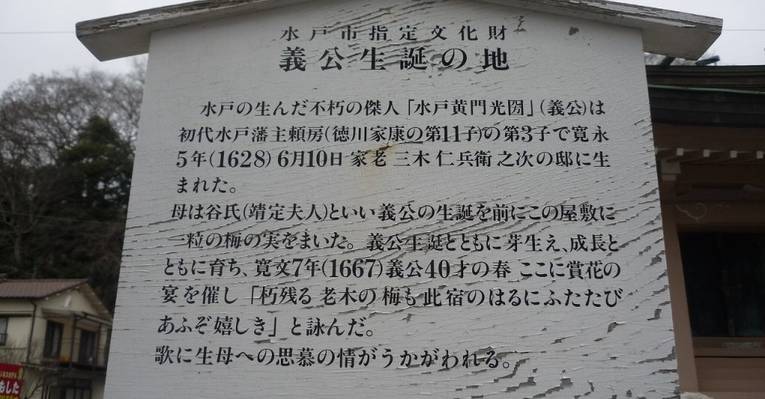 水戸市指定文化財
義公生誕の地
水戸の生んだ不朽の傑人「水戸黄門光圀」(義公)は
初代水戸藩主頼房(徳川家康の第11子)の第3子で寛永
5年(1628)6月10日家老三木仁兵衛之次の邸に生
まれた。
母は谷氏(靖定夫人)といい義公の生誕を前にこの屋敷に
一粒の梅の実をまいた。義公生誕とともに芽生え、成長と
ともに育ち、寛文7年(1667)義公40才の春ここに賞花の
宴を催し「朽残る老木の梅も此宿のはるにふたたび
あふぞ嬉しき」と詠んだ。
歌に生母への思慕の情がうかがわれる。
した